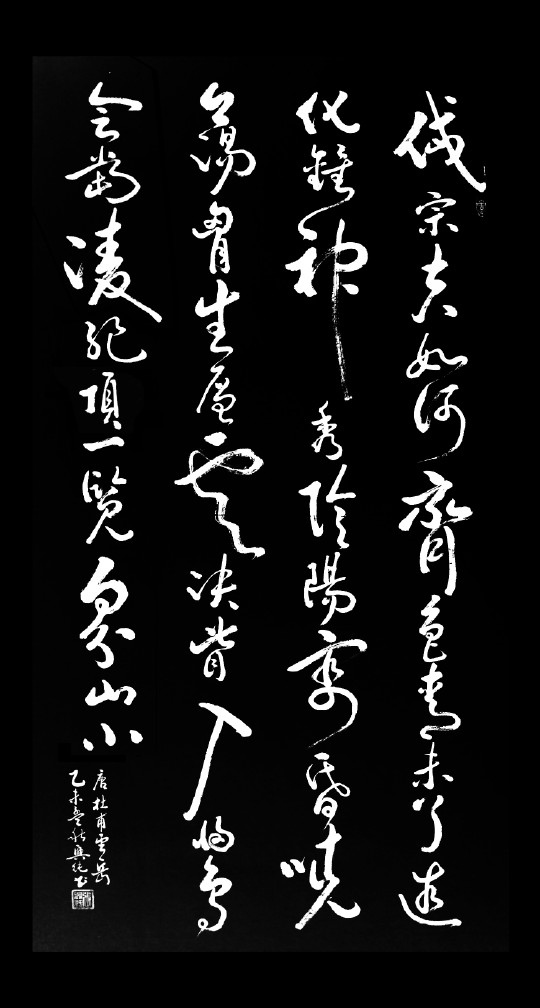 岱宗夫如何齊魯青未了造
化鍾神秀陰陽割昏曉
蕩胸生層雲決眥入歸鳥
會當凌絕頂一覽眾山小
唐杜甫望嶽
乙未孟秋